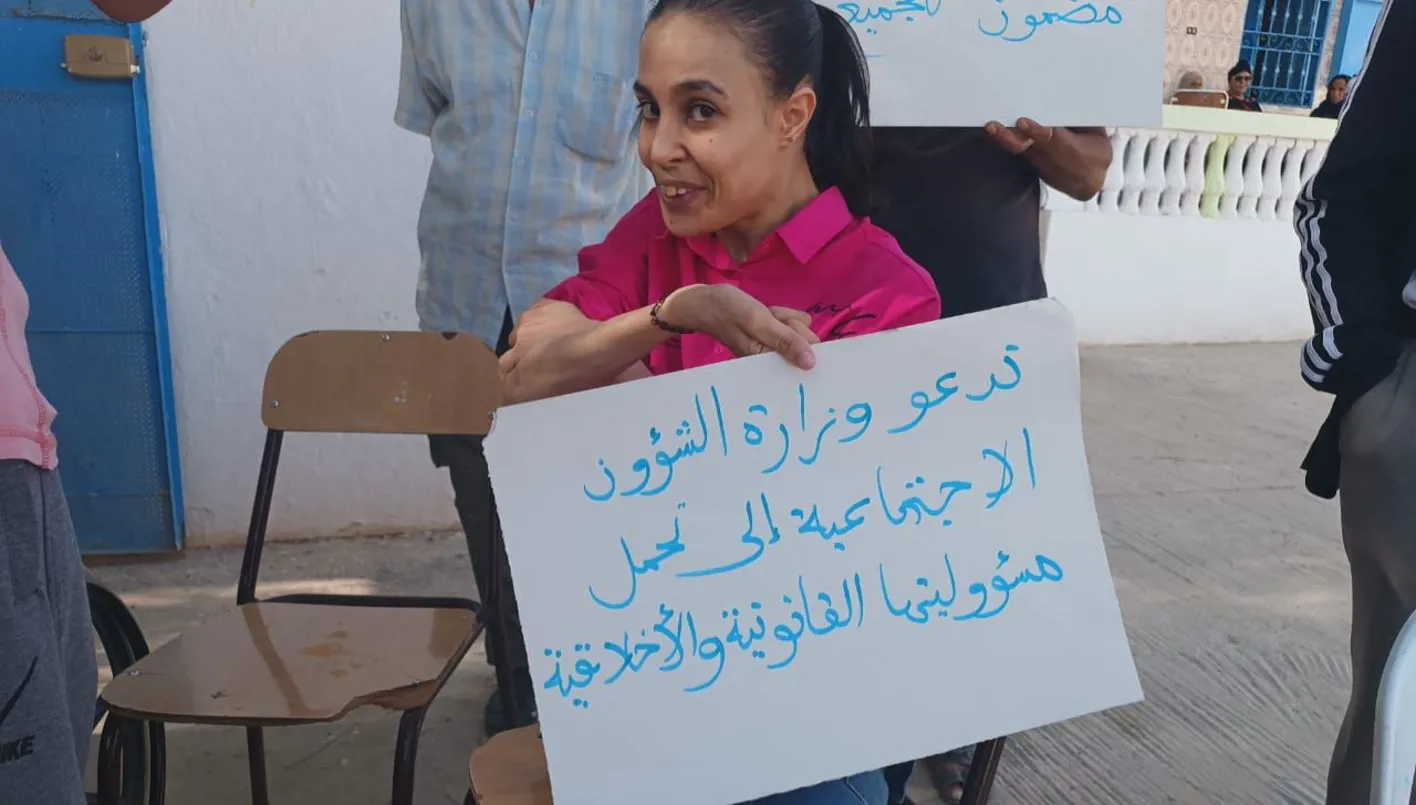 مضمون للجميع
تدعو وزارة الشؤون
الاجتماعية إلى تحمل
مسؤوليتها القانونية والأخلاقية
NIKE